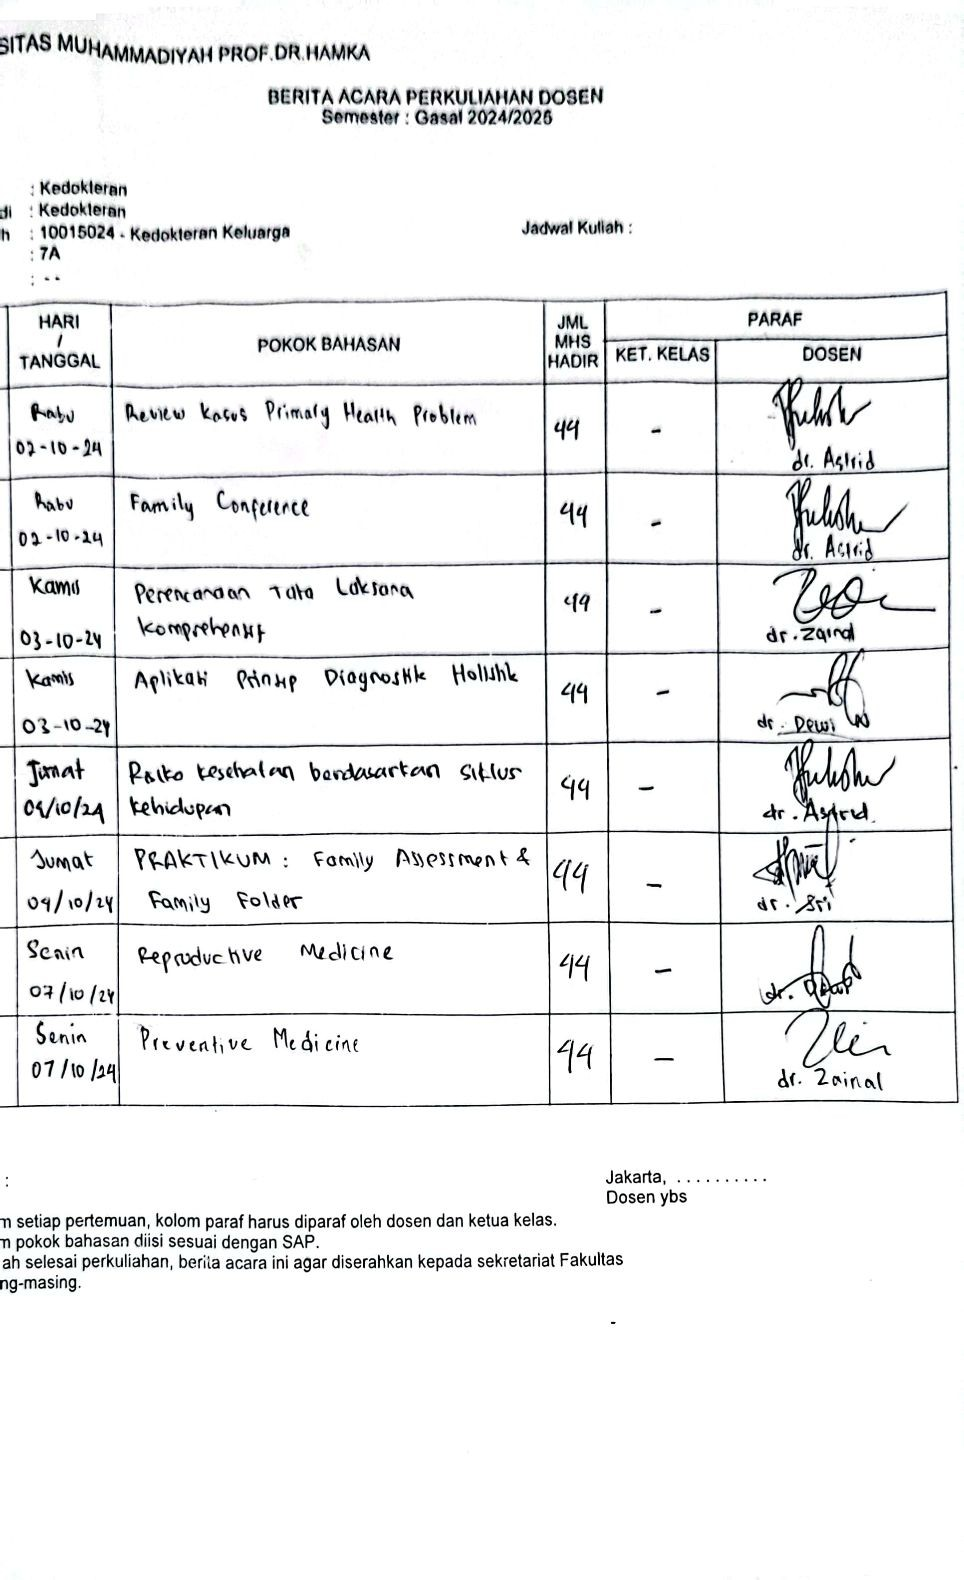 SITAS MUHAMMADIYAH PROF.DR.HAMKA
BERITA ACARA PERKULIAHAN DOSEN
Semester : Gasal 2024/2025
: Kedokteran
di : Kedokteran
h : 10015024 - Kedokteran Keluarga
Jadwal Kuliah :
: 7A
: --
HARI / TANGGAL
POKOK BAHASAN
JML MHS HADIR
PARAF
KET. KELAS
DOSEN
Rabu
02-10-24
Review Kasus Primary Health Problem
44
-
dr. Astrid
Rabu
02-10-24
Family Conference
44
-
dr. Astrid
Kamis
03-10-24
Perencanaan Tata Laksana
Komprehensif
44
-
dr. Zainal
Kamis
03-10-24
Aplikasi Prinsip Diagnostik Holistik
44
-
dr. Dewi
Jumat
04/10/24
Risiko kesehatan berdasarkan siklus
kehidupan
44
-
dr. Astrid
Jumat
04/10/24
PRAKTIKUM : Family Assessment &
Family Folder
44
-
dr. Sri
Senin
07/10/24
Reproductive Medicine
44
-
dr.
Senin
07/10/24
Preventive Medicine
44
-
dr. Zainal
:
Jakarta, ..........
Dosen ybs
m setiap pertemuan, kolom paraf harus diparaf oleh dosen dan ketua kelas.
m pokok bahasan diisi sesuai dengan SAP.
ah selesai perkuliahan, berita acara ini agar diserahkan kepada sekretariat Fakultas
ng-masing.
-